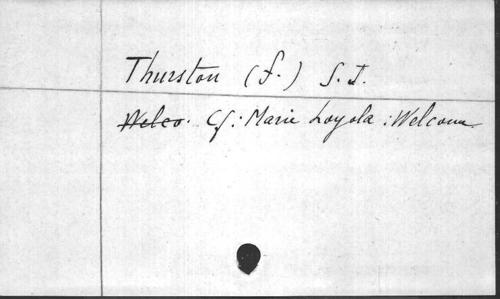 Thurston (f.) S.J.
Welco. Cf: Marie Loyola : Welcome